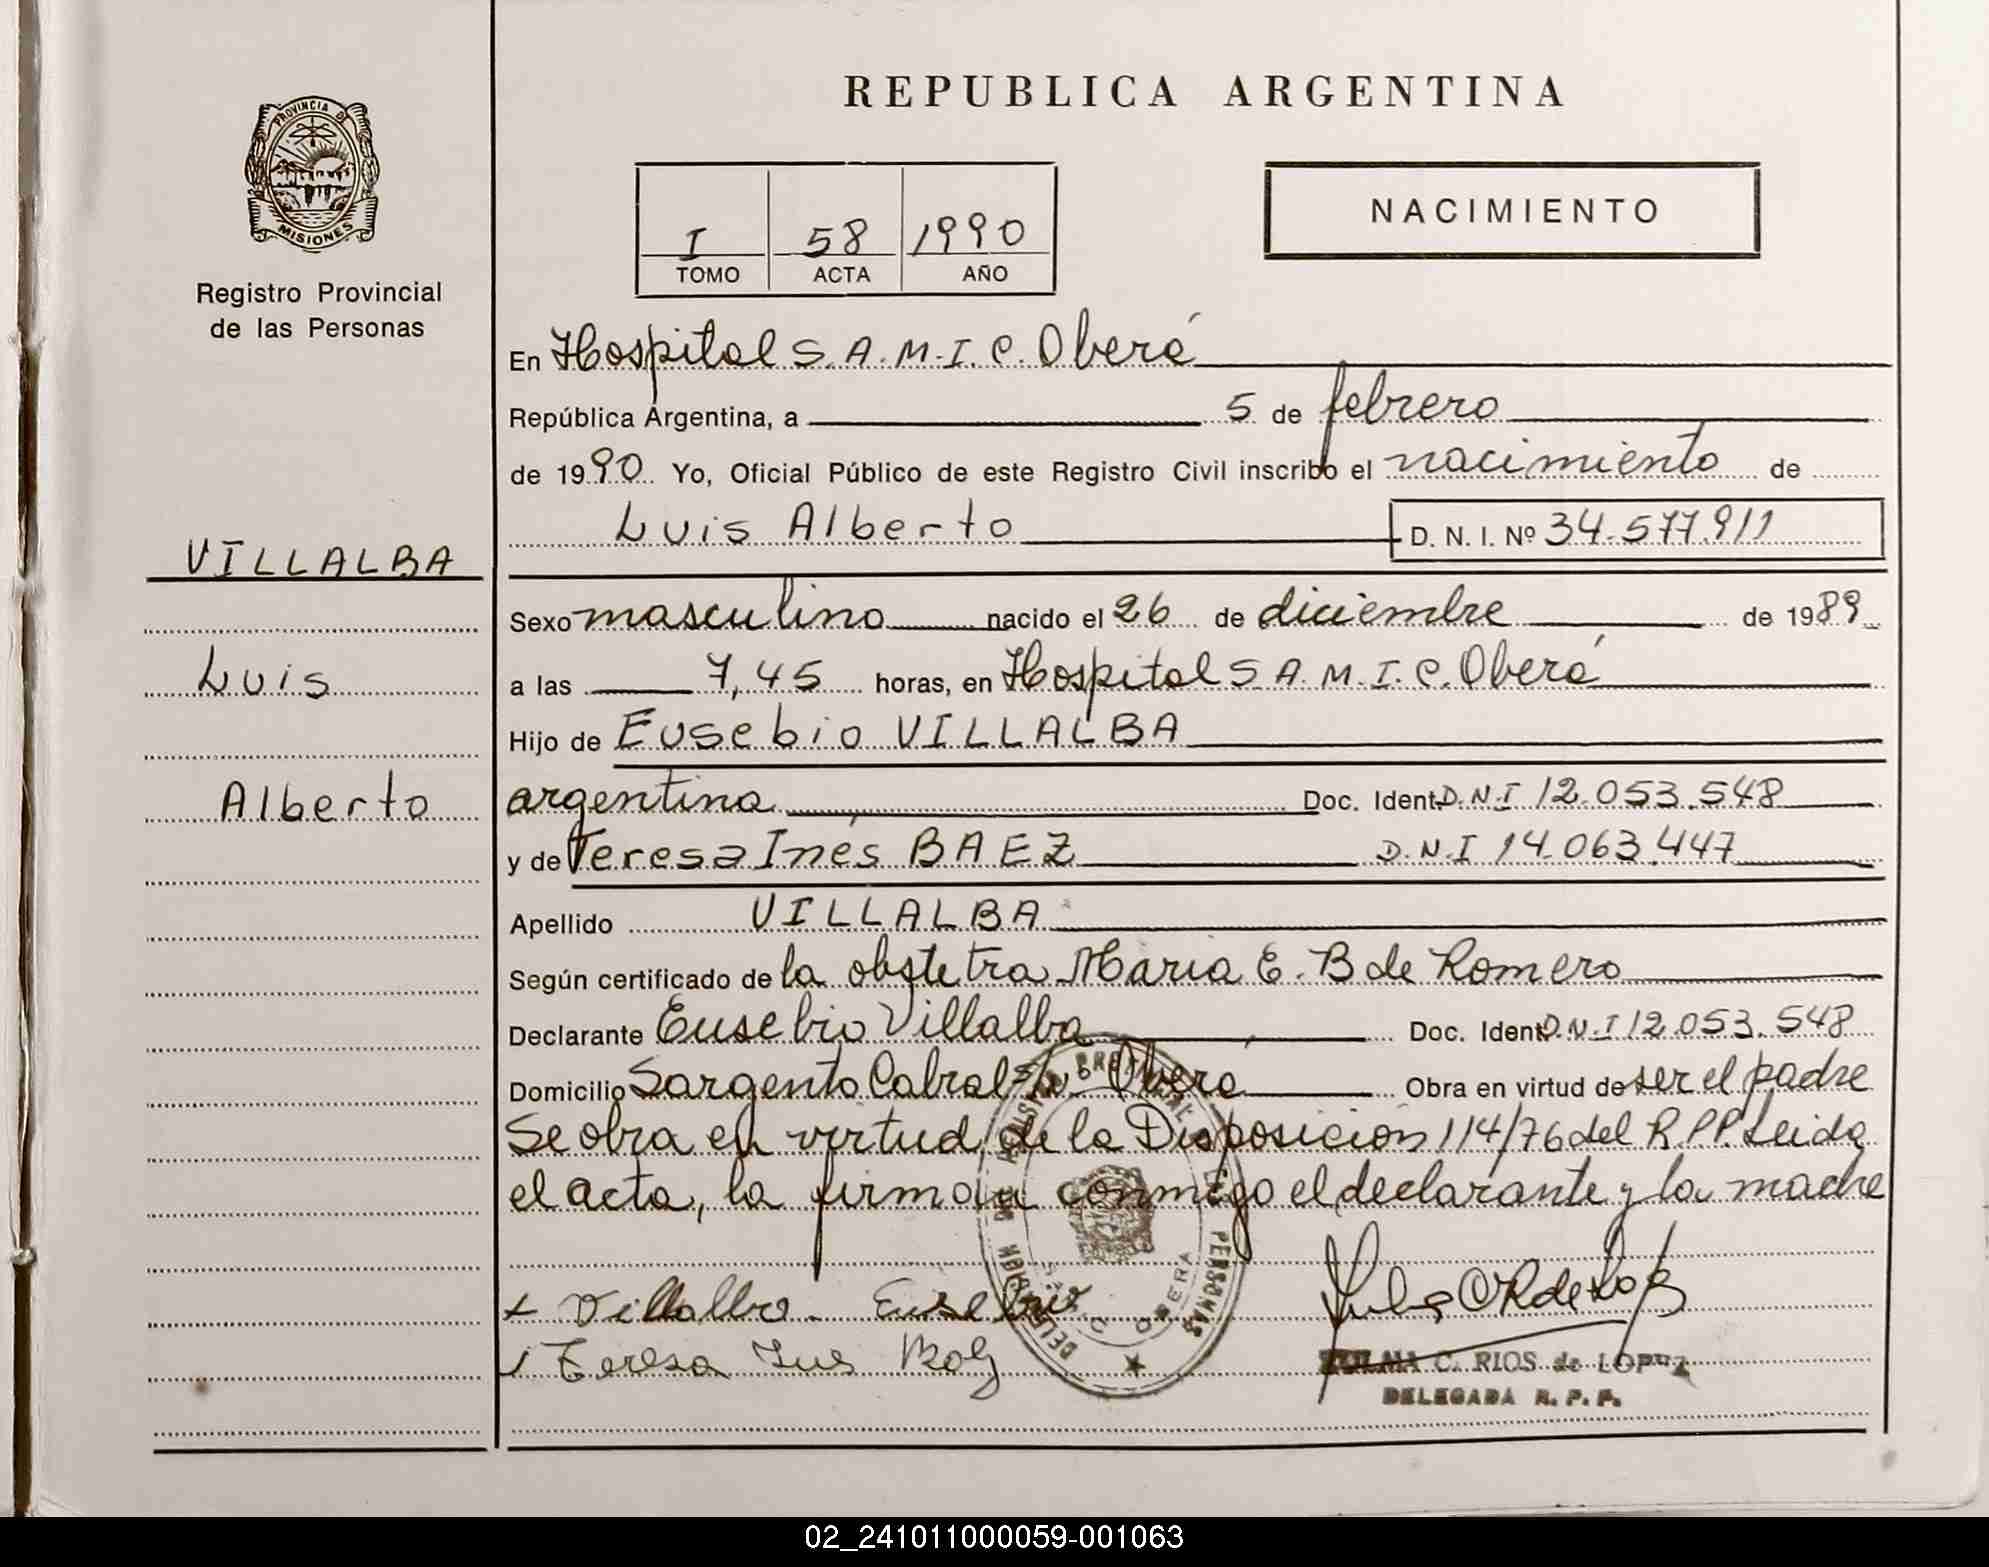 REPUBLICA ARGENTINA
PROVINCIA DE
MISIONES
Registro Provincial
de las Personas
I 58 1990
TOMO ACTA AÑO
NACIMIENTO
En Hospital S.A.M.I.C. Oberá
República Argentina, a 5 de febrero
de 1990 Yo, Oficial Público de este Registro Civil inscribo el nacimiento de
Luis Alberto D. N. I. Nº 34.577.911
VILLALBA
Luis
Alberto
Sexo masculino nacido el 26 de diciembre de 1989
a las 7,45 horas, en Hospital S.A.M.I.C. Oberá
Hijo de Eusebio VILLALBA
argentina Doc. Ident. D.N.I 12.053.548
y de Teresa Inés BAEZ D.N.I 14.063.447
Apellido VILLALBA
Según certificado de la obstetra Maria E. B de Romero
Declarante Eusebio Villalba Doc. Ident. D.N.I 12.053.548
Domicilio Sargento Cabral s/nº Oberá Obra en virtud de ser el padre
Se obra en virtud de la Disposición 114/76 del R.P.P. Leida
el acta, la firman conmigo el declarante y la madre
Villalba Eusebio
Teresa Ines
OBERA
C. RIOS de LOPEZ
DELEGADA R. P. P.
02_241011000059-001063